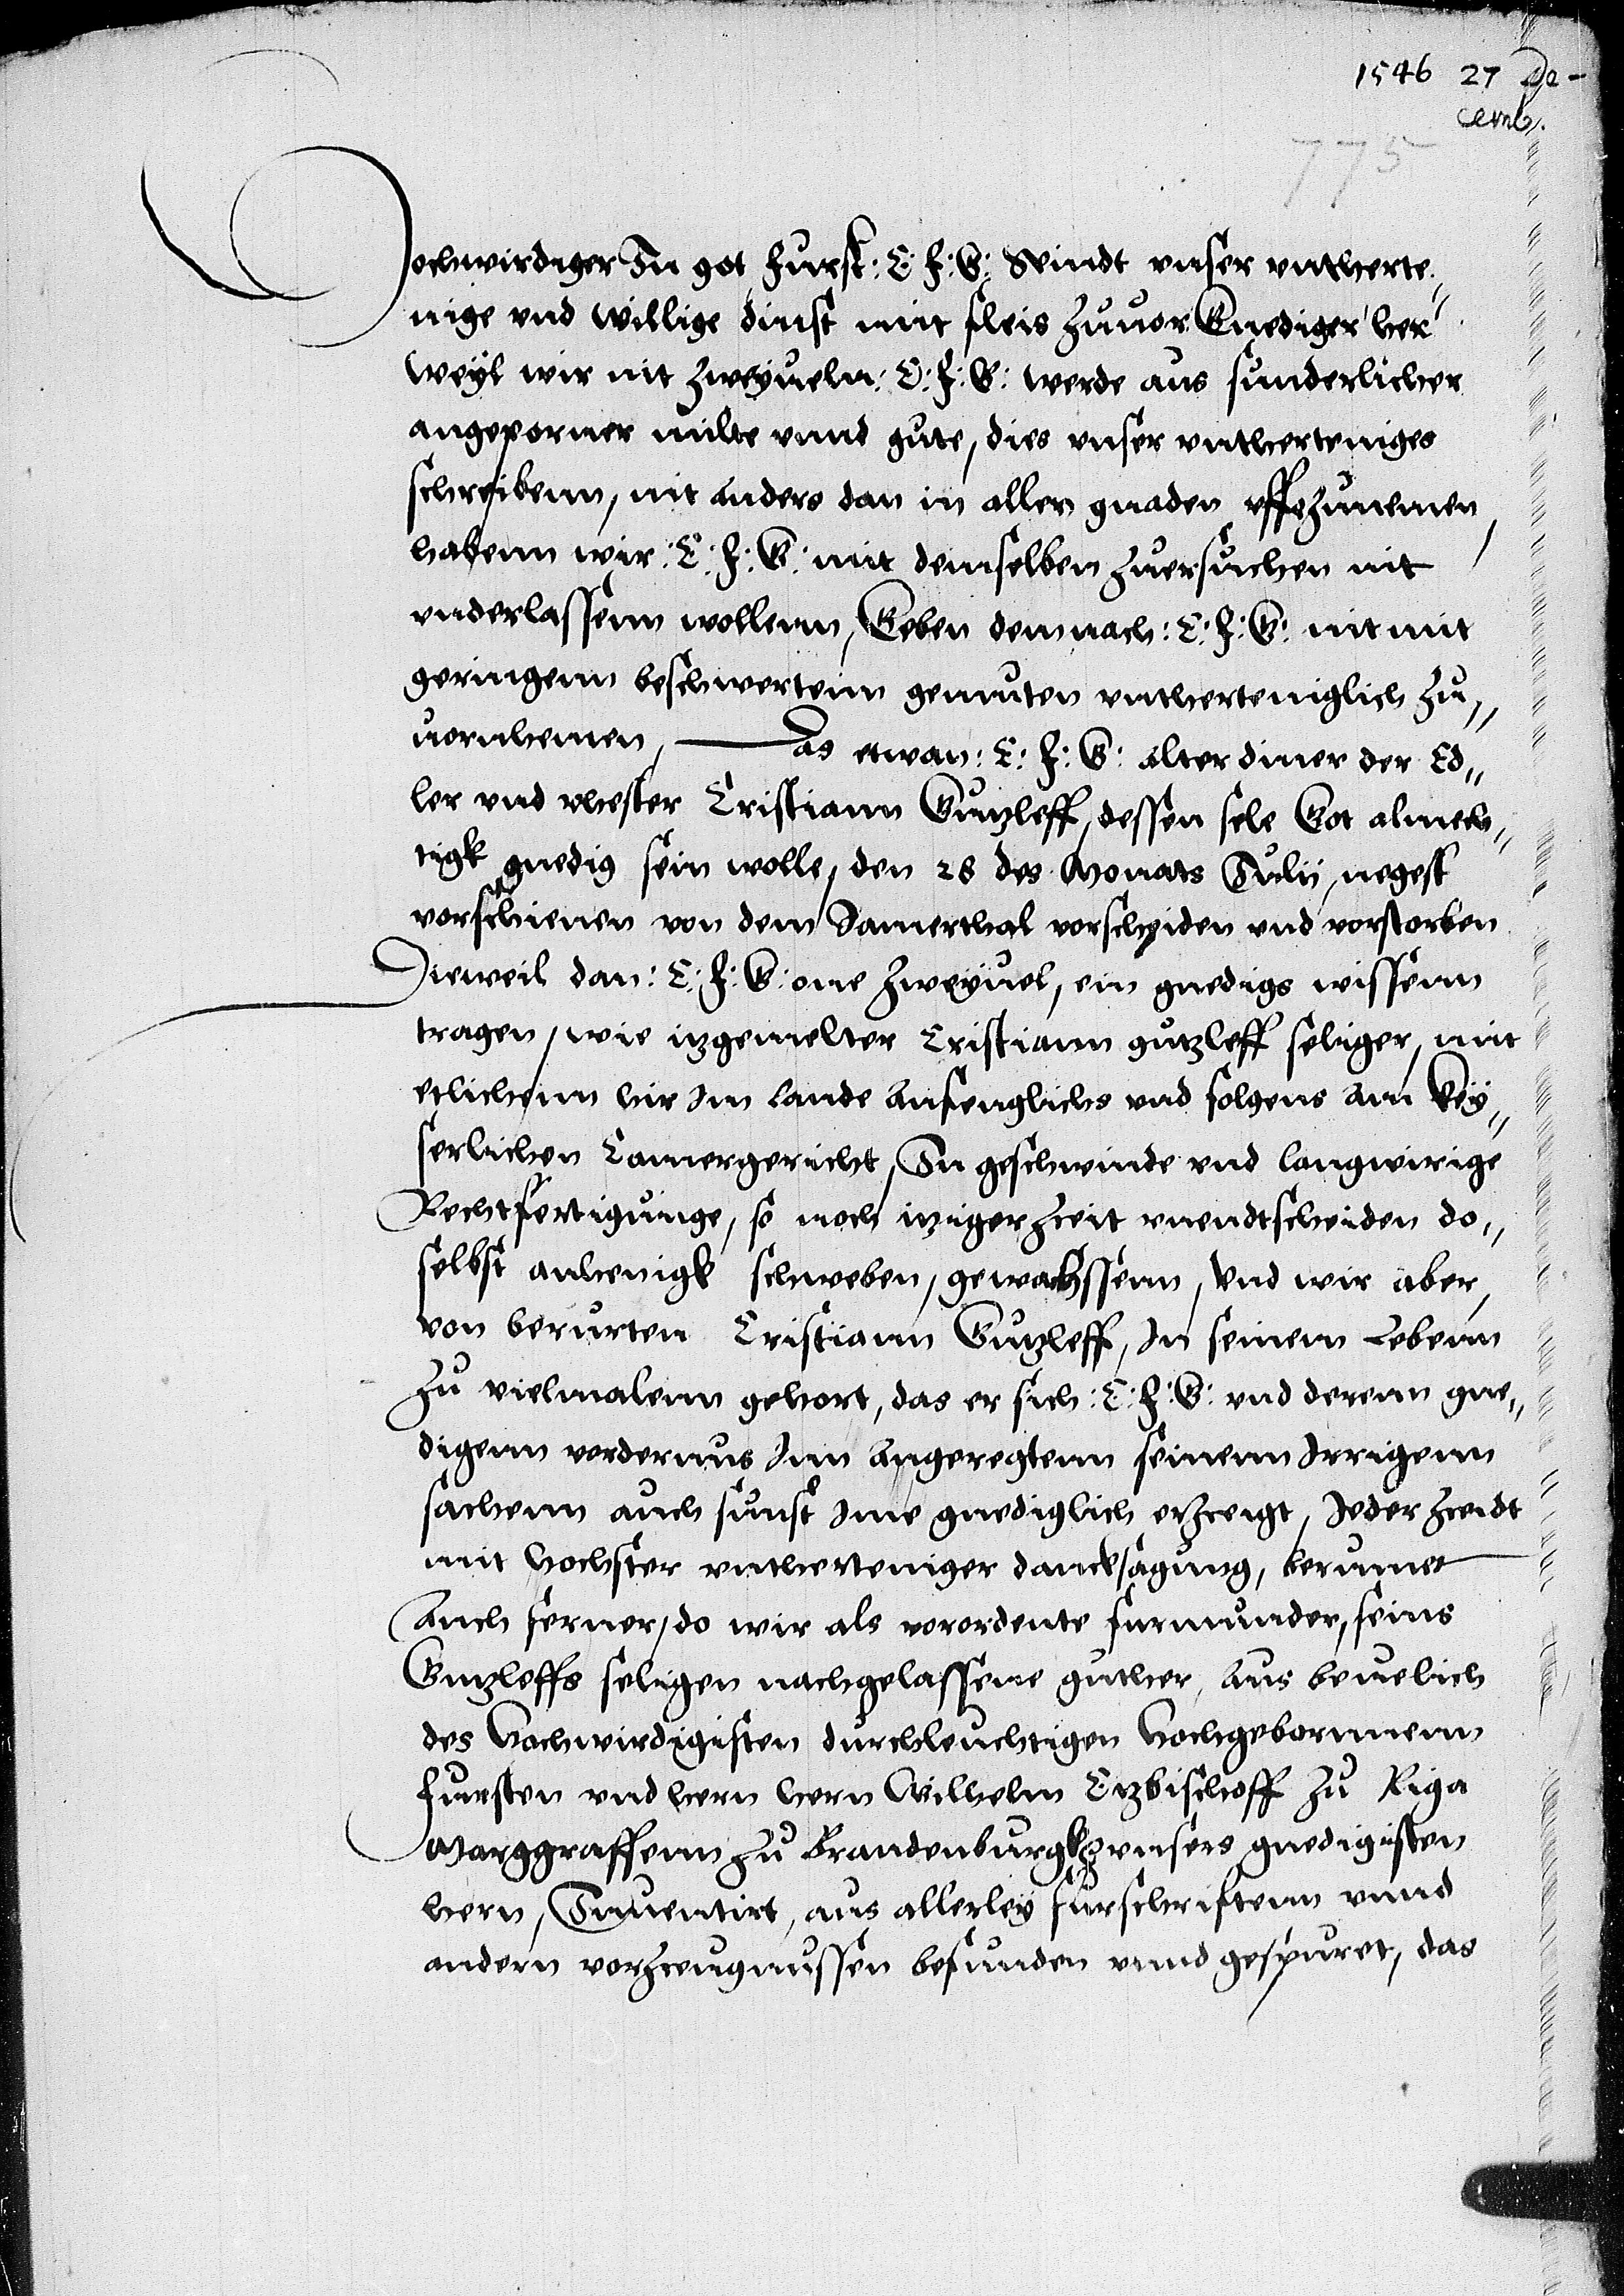 1546 27 De-
cemb.
775
Hochwirdiger In got Furst: E: F: G: Seindt vnser vntherte„
nige vnd willige dinst mit fleis zuuor Gnediger her
weyl wir nit zweyueln: E: F: G: werde aus sunderlicher
angeporner milte vnnd gute, dies vnser vntherteniges
schreibenn, nit anders dan in allen gnaden vffzunemen,
habenn wir: E: F: G: mit demselben zuersuchen nit
vnderlassenn wollenn, Geben demnach: E: F: G: nit mit
geringenn beschwertenn gemuten vntherteniglich zu„
uornhemen, Das etwan: E: F: G: alter diner der Ed„
ler vnd vhester Cristiann Gutzleff, dessen sele Got almech„
tigk gnedig sein wolle, den 28 des Monats Julij, negest
vorschienen von dem Jamerthal vorscheiden vnd vorstorben
Dieweil dan: E: F: G: one zweyuel, ein gnedigs wissenn
tragen, wie itzgemelter Cristiann gutzleff seliger, mit
etlichenn hir Im Lande Anfenglichs vnd folgens am Key„
serlichen Camergericht, In geschwinde vnd langwirige
Rechtfertigunge, so noch itziger zceit vnendtscheiden do„
selbst anhenigk schweben, gewachssenn, Vnd wir aber,
von berurten Cristiann Gutzleff, In seinem Lebenn
zu vielmalenn gehort, das er sich: E: F: G: vnd derenn gne„
digenn vordernus Inn Angeregtenn seinenn Irrigenn
sachenn auch sunst Ime gnediglich erzceigt, Jeder zceidt
mit hochster vntherteniger dancksagung, berumet
Auch ferner, do wir als verordente furmunder, seins
Gutzleffs seligen nachgelassene guther, Aus beuelich
des Hochwirdigisten durchleuchtigen Hochgebornnenn
Fursten vnd hern hern Wilhelm Ertzbischoff zu Riga
Marggraffenn zu Brandenburgk vnsers gnedigisten
hern, Inuentirt, aus allerley furschriftenn vnnd
andern vorzceugnussen befunden vnnd gespuret, das